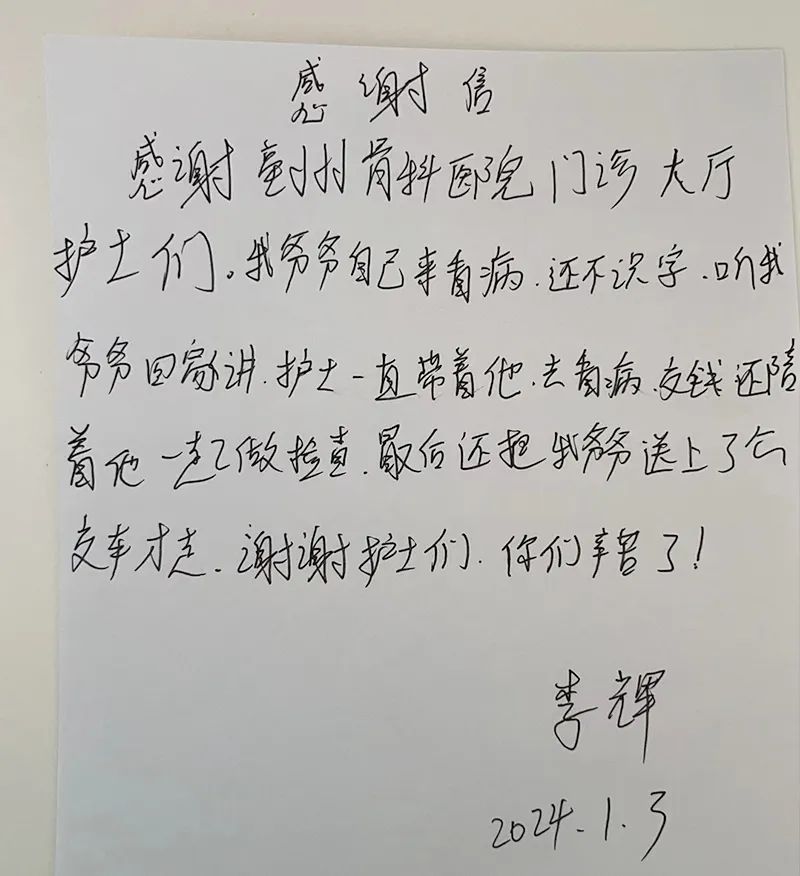 感谢信
感谢州骨科医院门诊大厅
护士们。我爷爷自己来看病.还不识字.听我
爷爷回家讲.护士一直带着他.去看病.交钱还陪
着他一起做检查.最后还把我爷爷送上了公
交车才走.谢谢护士们.你们辛苦了!
李辉
2024.1.3